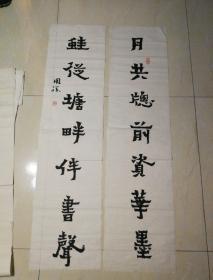 月共窗前資華墨
蛙從塘畔伴書聲